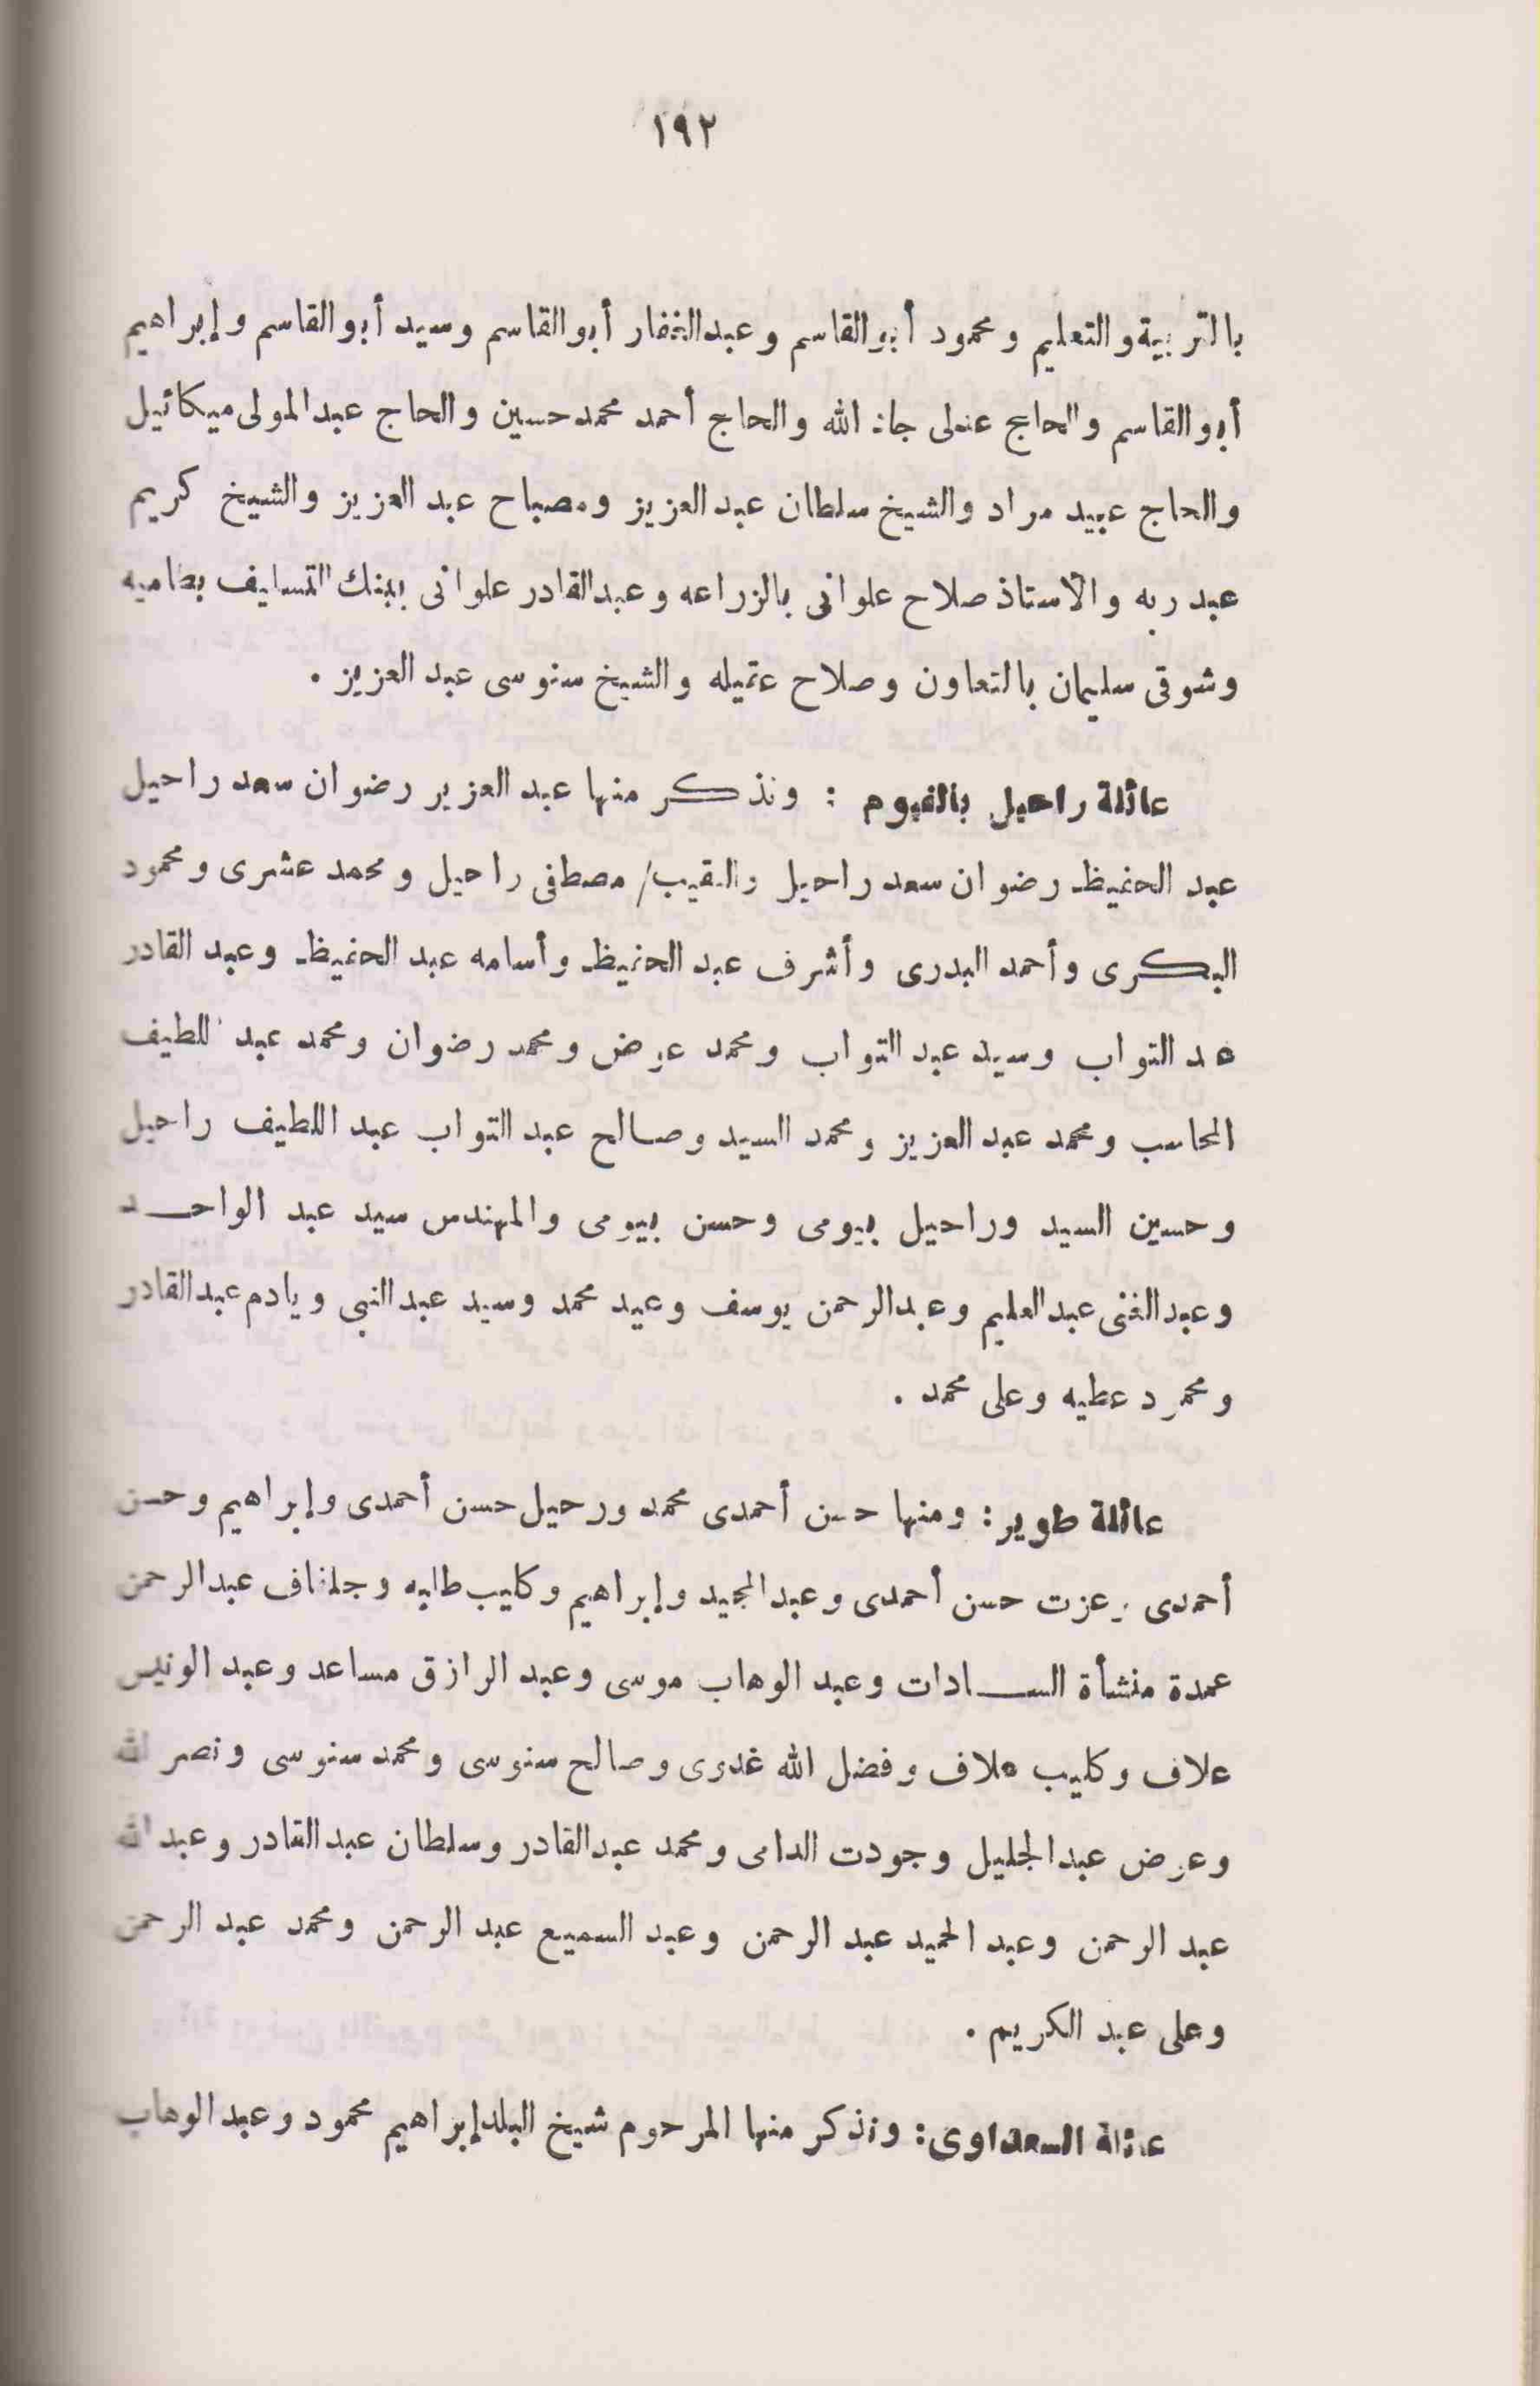 ١٩٢
بالتربية والتعليم ومحمود أبو القاسم وعبد الغفار أبو القاسم وسيد أبو القاسم وإبراهيم
أبو القاسم والحاج عدلى جاد الله والحاج أحمد محمد حسين والحاج عبد المولى ميكائيل
والحاج عبيد مراد والشيخ سلطان عبد العزيز ومصباح عبد العزيز والشيخ كريم
عبد ربه والأستاذ صلاح علوانى بالزراعه وعبد القادر علوانى ببنك التسليف بطاميه
وشوقى سليمان بالتعاون وصلاح عتميله والشيخ سنوسى عبد العزيز .
عائلة راحيل بالفيوم : ونذكر منها عبد العزيز رضوان سعد راحيل
عبد الحفيظ رضوان سعد راحيل والنقيب/ مصطفى راحيل ومحمد عشرى ومحمود
البكرى وأحمد البدرى وأشرف عبد الحفيظ وأسامه عبد الحفيظ وعبد القادر
عبد التواب وسيد عبد التواب ومحمد عوض ومحمد رضوان ومحمد عبد اللطيف
المحاسب ومحمد عبد العزيز ومحمد السيد وصالح عبد التواب عبد اللطيف راحيل
وحسين السيد وراحيل بيومى وحسن بيومى والمهندس سيد عبد الواحد
وعبد الغنى عبد العليم وعبد الرحمن يوسف وعيد محمد وسيد عبد النبى ويادم عبد القادر
ومحمود عطيه وعلى محمد .
عائلة طوير : ومنها حسن أحمدى محمد ورحيل حسن أحمدى وإبراهيم وحسن
أحمدى وعزت حسن أحمدى وعبد المجيد وإبراهيم وكليب طلبه وجلغاف عبد الرحمن
عمدة منشأة السادات وعبد الوهاب موسى وعبد الرازق مساعد وعبد الونيس
علاف وكليب علاف وفضل الله غدوى وصالح سنوسى ومحمد سنوسى ونصر الله
وعوض عبد الجليل وجودت الدامى ومحمد عبد القادر وسلطان عبد القادر وعبد الله
عبد الرحمن وعبد الحميد عبد الرحمن وعبد السميع عبد الرحمن ومحمد عبد الرحمن
وعلى عبد الكريم .
عائلة السعداوى : ونذكر منها المرحوم شيخ البلد إبراهيم محمود وعبد الوهاب